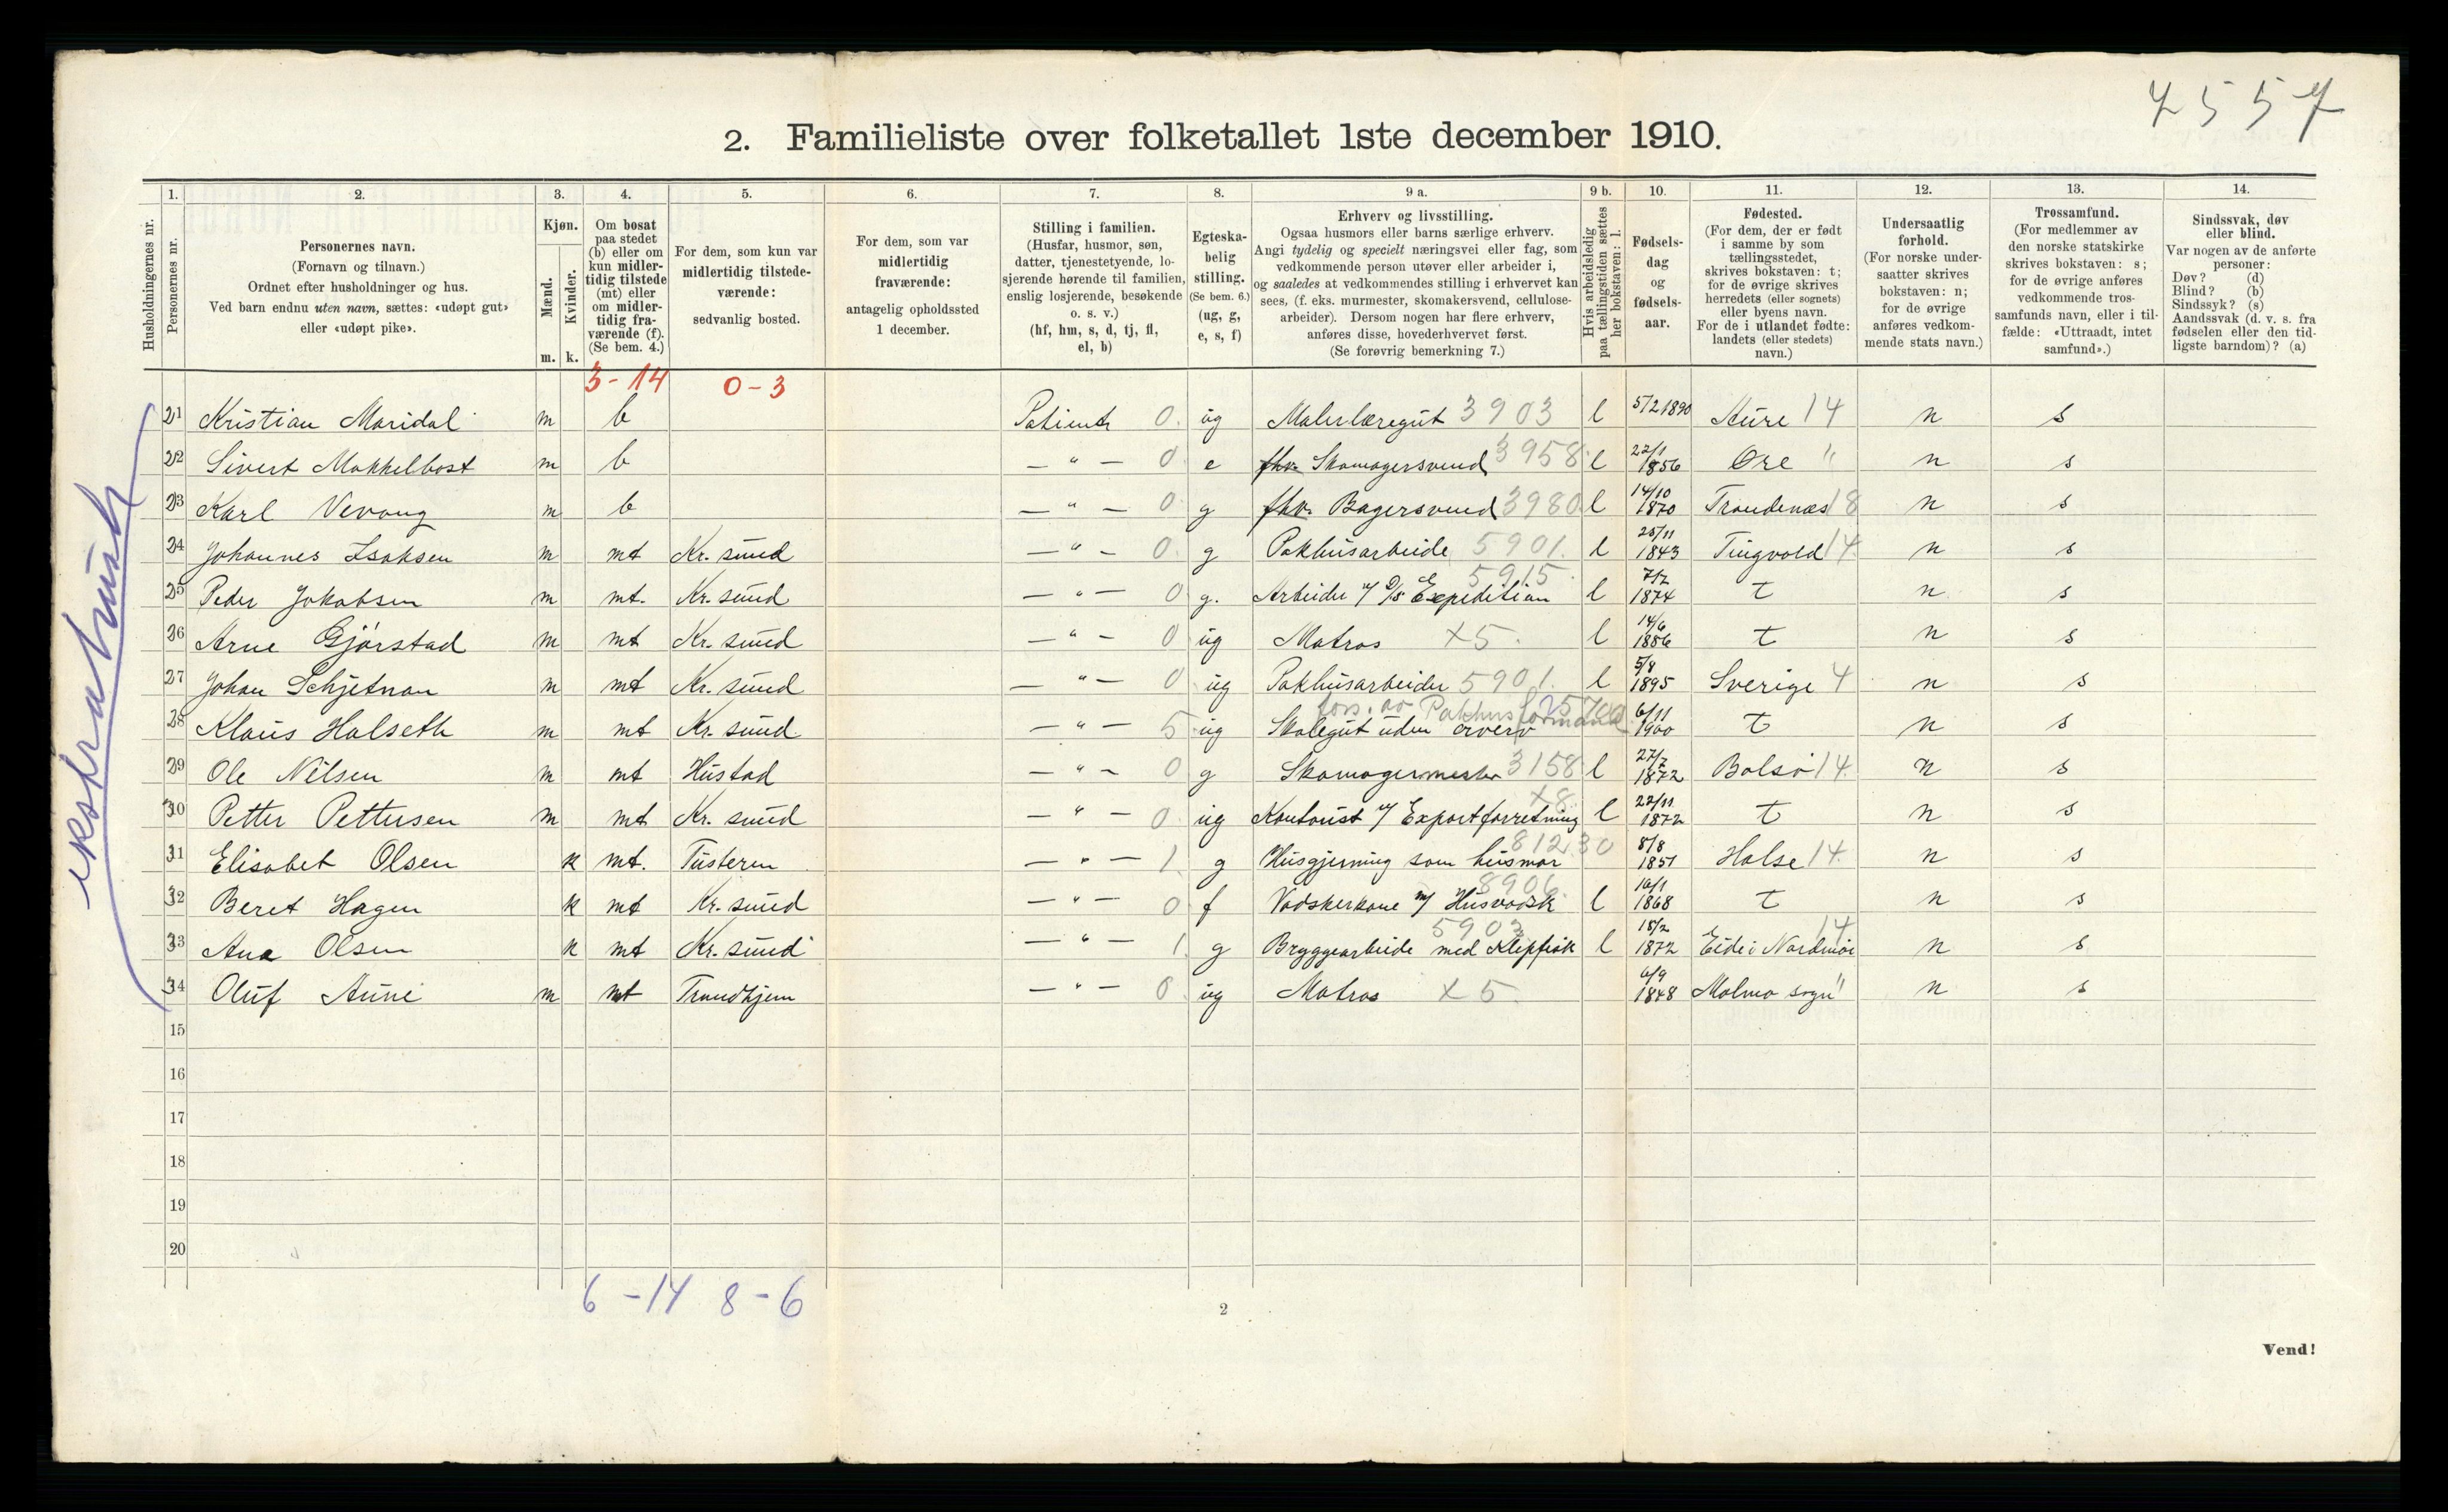 4557
2. Familieliste over folketallet 1ste december 1910.
1. 2. 3. 4. 5. 6. 7. 8. 9 a. 9 b. 10. 11. 12. 13. 14.
Husholdningernes nr.
Personernes nr.
Personernes navn.
(Fornavn og tilnavn.)
Ordnet efter husholdninger og hus.
Ved barn endnu uten navn, sættes: «udøpt gut»
eller «udøpt pike».
Kjøn.
Mænd.
Kvinder.
m. k.
Om bosat
paa stedet
(b) eller om
kun midler-
tidig tilstede
(mt) eller
om midler-
tidig fra-
værende (f).
(Se bem. 4.)
For dem, som kun var
midlertidig tilstede-
værende:
sedvanlig bosted.
For dem, som var
midlertidig
fraværende:
antagelig opholdssted
1 december.
Stilling i familien.
(Husfar, husmor, søn,
datter, tjenestetyende, lo-
sjerende hørende til familien,
enslig losjerende, besøkende
o. s. v.)
(hf, hm, s, d, tj, fl,
el, b)
Egteska-
belig
stilling.
(Se bem. 6.)
(ug, g,
e, s, f)
Erhverv og livsstilling.
Ogsaa husmors eller barns særlige erhverv.
Angi tydelig og specielt næringsvei eller fag, som
vedkommende person utøver eller arbeider i,
og saaledes at vedkommendes stilling i erhvervet kan
sees, (f. eks. murmester, skomakersvend, cellulose-
arbeider). Dersom nogen har flere erhverv,
anføres disse, hovederhvervet først.
(Se forøvrig bemerkning 7.)
Hvis arbeidsledig
paa tællingstiden sættes
her bokstaven: l.
Fødsels-
dag
og
fødsels-
aar.
Fødested.
(For dem, der er født
i samme by som
tællingsstedet,
skrives bokstaven: t;
for de øvrige skrives
herredets (eller sognets)
eller byens navn.
For de i utlandet fødte:
landets (eller stedets)
navn.)
Undersaatlig
forhold.
(For norske under-
saatter skrives
bokstaven: n;
for de øvrige
anføres vedkom-
mende stats navn.)
Trossamfund.
(For medlemmer av
den norske statskirke
skrives bokstaven: s;
for de øvrige anføres
vedkommende tros-
samfunds navn, eller i til-
fælde: «Uttraadt, intet
samfund».)
Sindssvak, døv
eller blind.
Var nogen av de anførte
personer:
Døv? (d)
Blind? (b)
Sindssyk? (s)
Aandssvak (d. v. s. fra
fødselen eller den tid-
ligste barndom)? (a)
3-14 0-3
21 Kristian Moridal m b Patient 0. ug Malerlæregut 3903 l 5/2 1890 Aure 14 n s
22 Sivert Mokkelbost m b — " — 0 e fhv. Skomagersvend 3958 l 22/1 1856 Øre " n s
23 Karl Vevang m b — " — 0 g fhv. Bagersvend 3980 l 14/10 1870 Trondenæs 18 n s
24 Johannes Isaksen m mt Kr. sund — " — 0 g Pakhusarbeide 5901. l 25/11 1843 Tingvold 14 n s
25 Peder Jakobsen m mt. Kr. sund — " — 0 g. Arbeider v/ D/s Expedition 5915 l 7/2 1874 t n s
26 Arne Gjørstad m mt Kr. sund — " — 0 ug Matros x5. l 14/6 1886 t n s
27 Johan Schjetnan m mt Kr. sund — " — 0 ug Pakhusarbeider 5901. l 5/8 1895 Sverige 4 n s
28 Klaus Halseth m mt Kr. sund — " — 5 ug Skolegut uden erverv fors. av Pakhusformand 6/11 1900 t n s
29 Ole Nilsen m mt Hustad — " — 0 g Skomagermester 3158 l 27/7 1872 Bolsø 14 n s
30 Petter Pettersen m mt Kr. sund — " — 0 ug Kontorist v/ Exportforretning x8 l 22/11 1872 t n s
31 Elisabet Olsen k mt. Tusteren — " — 1 g Husgjerning som husmor 81230 8/8 1851 Halse 14 n s
32 Beret Hagen k mt Kr. sund — " — 0 f Vadskerkone m/ Husvadsk 8906. l 16/1 1868 t n s
33 Ana Olsen k mt Kr. sund — " — 1 g Bryggearbeide med Klipfisk 5903 l 18/2 1872 Eide i Nordmør 14 n s
34 Oluf Aune m mt Trondhjem — " — 0 ug Matros x5 6/9 1848 Malmo sogn " n s
15
16
17
18
19
20
6-14 8-6
2
Vend!